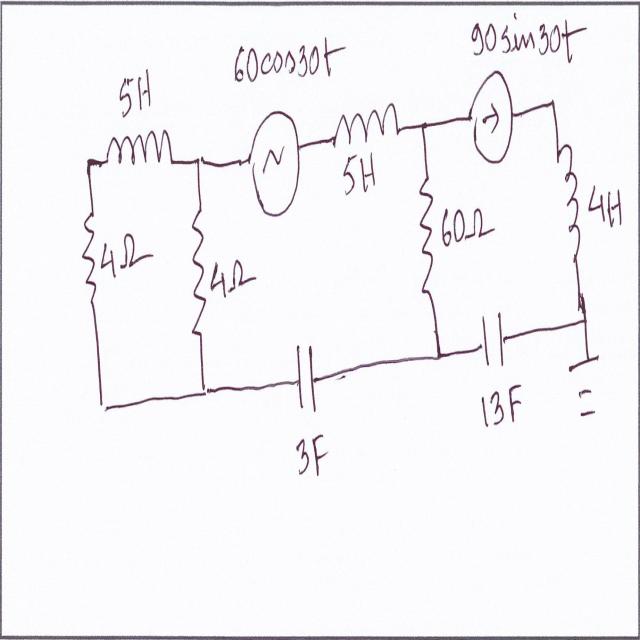 60cos30t
90sin30t
5H
~
5H
4Ω
4Ω
60Ω
4H
3F
13F